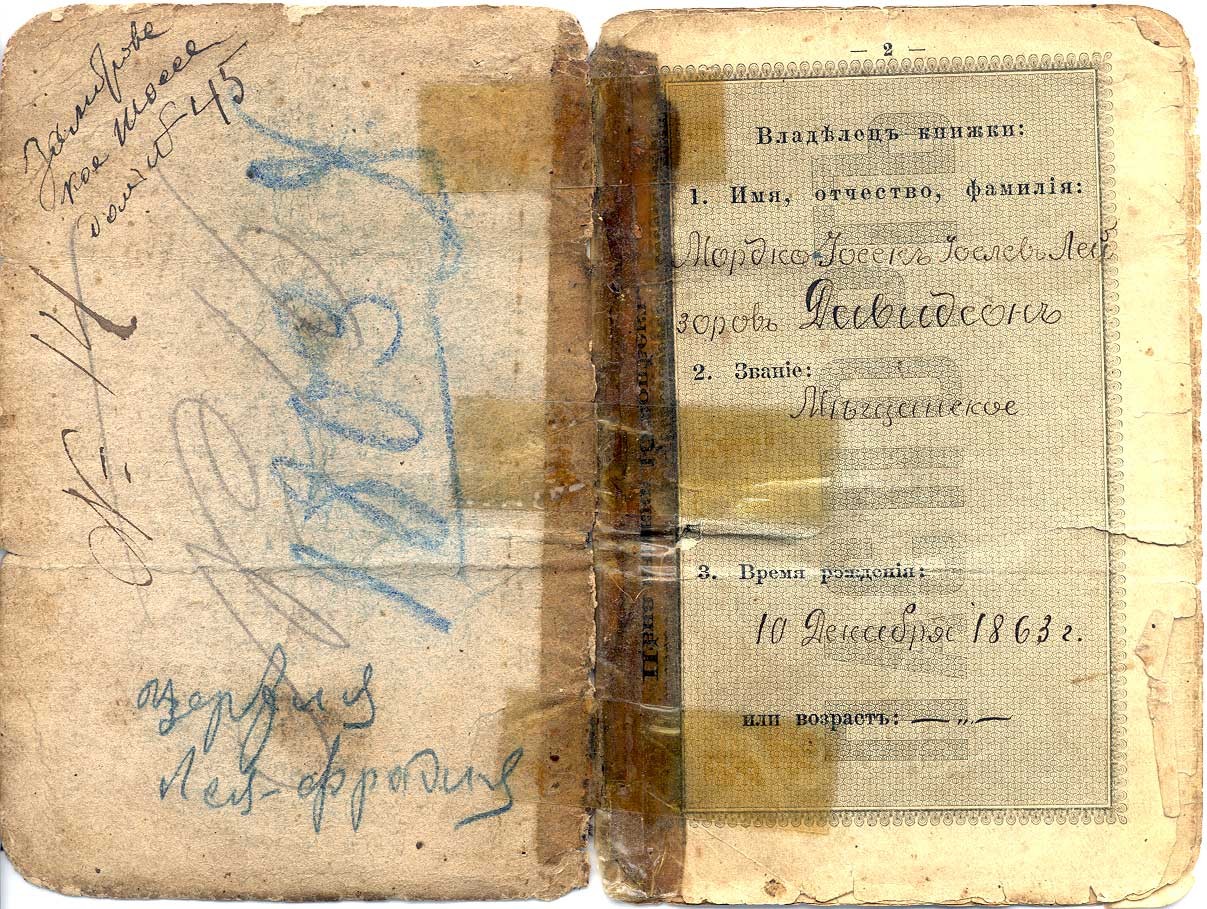 кое шоссе
домъ № 45
№. 14
1703
Лея-Фрадля
— 2 —
Владѣлецъ книжки:
1. Имя, отчество, фамилія:
Мордко-Iосекъ Iоселевъ Лей
зоровъ Давидсонъ
2. Званіе:
Мѣщанское
3. Время рожденія:
10 Декабря 1863 г.
или возрастъ: — „ —
Цѣна